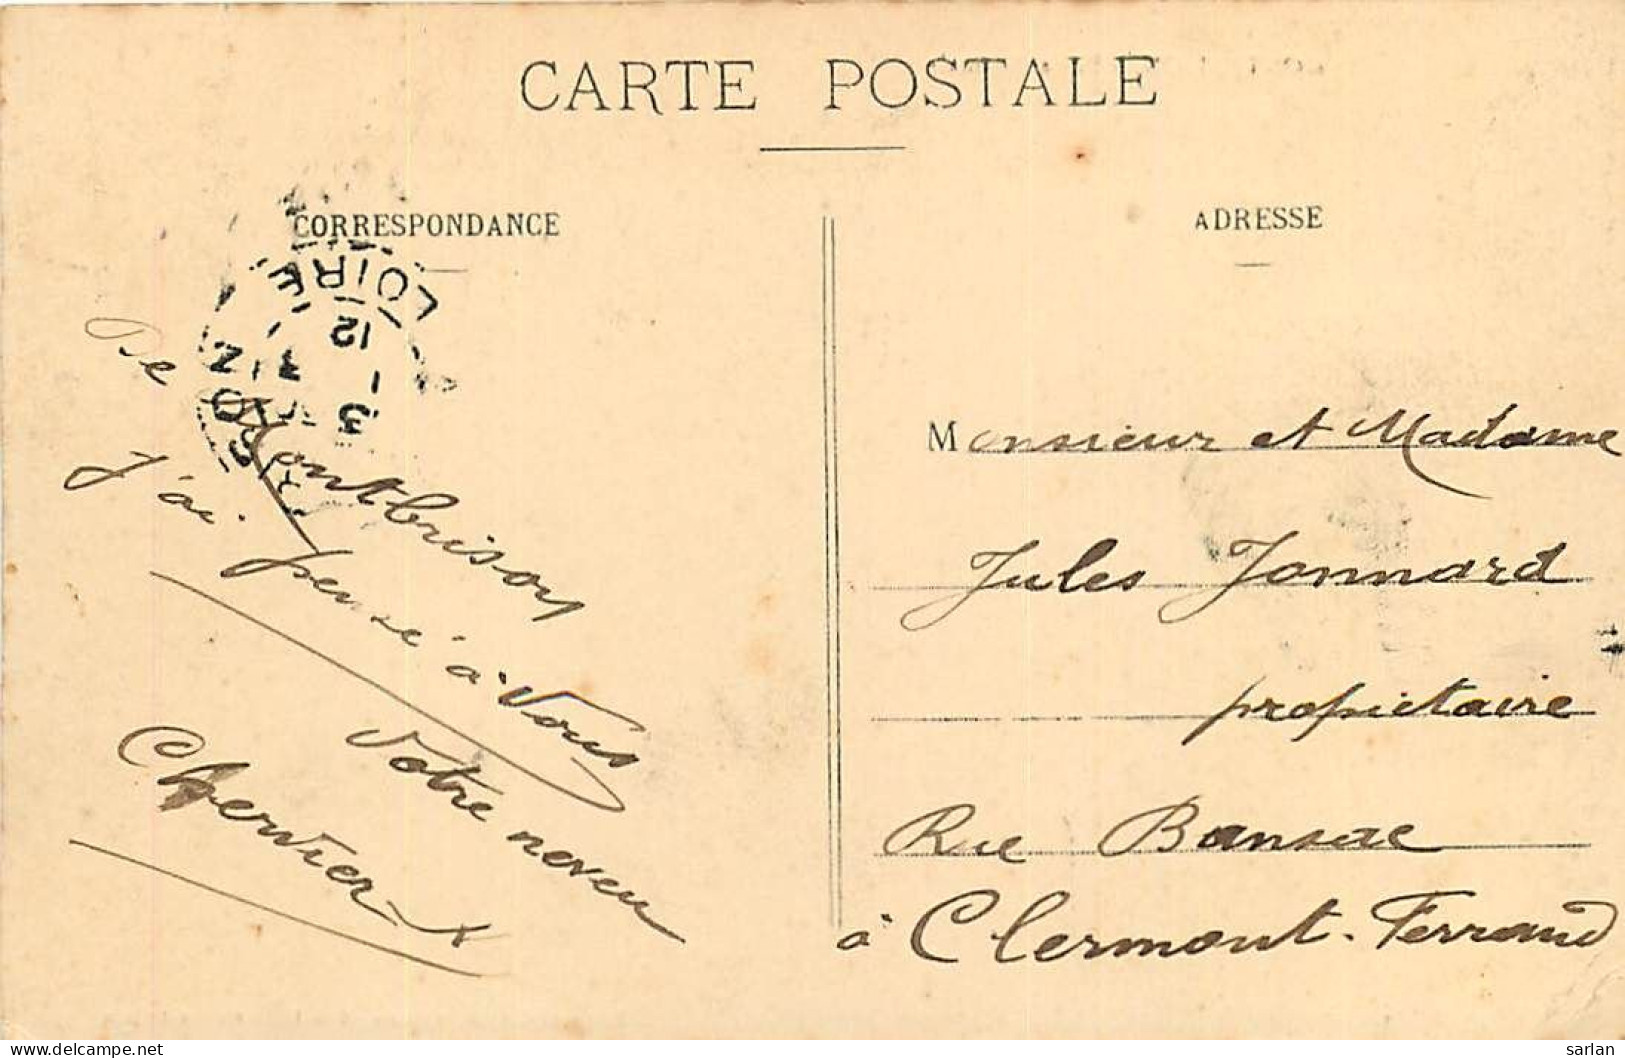 CARTE POSTALE
CORRESPONDANCE
LOIRE
12
3 -
De Montbrison
J'ai pensé à Vous
Votre neveu
Chervier
ADRESSE
Monsieur et Madame
Jules Jonnard
propiétaire
Rue Bansac
à Clermont-Ferrand
delcampe.net
sarlan